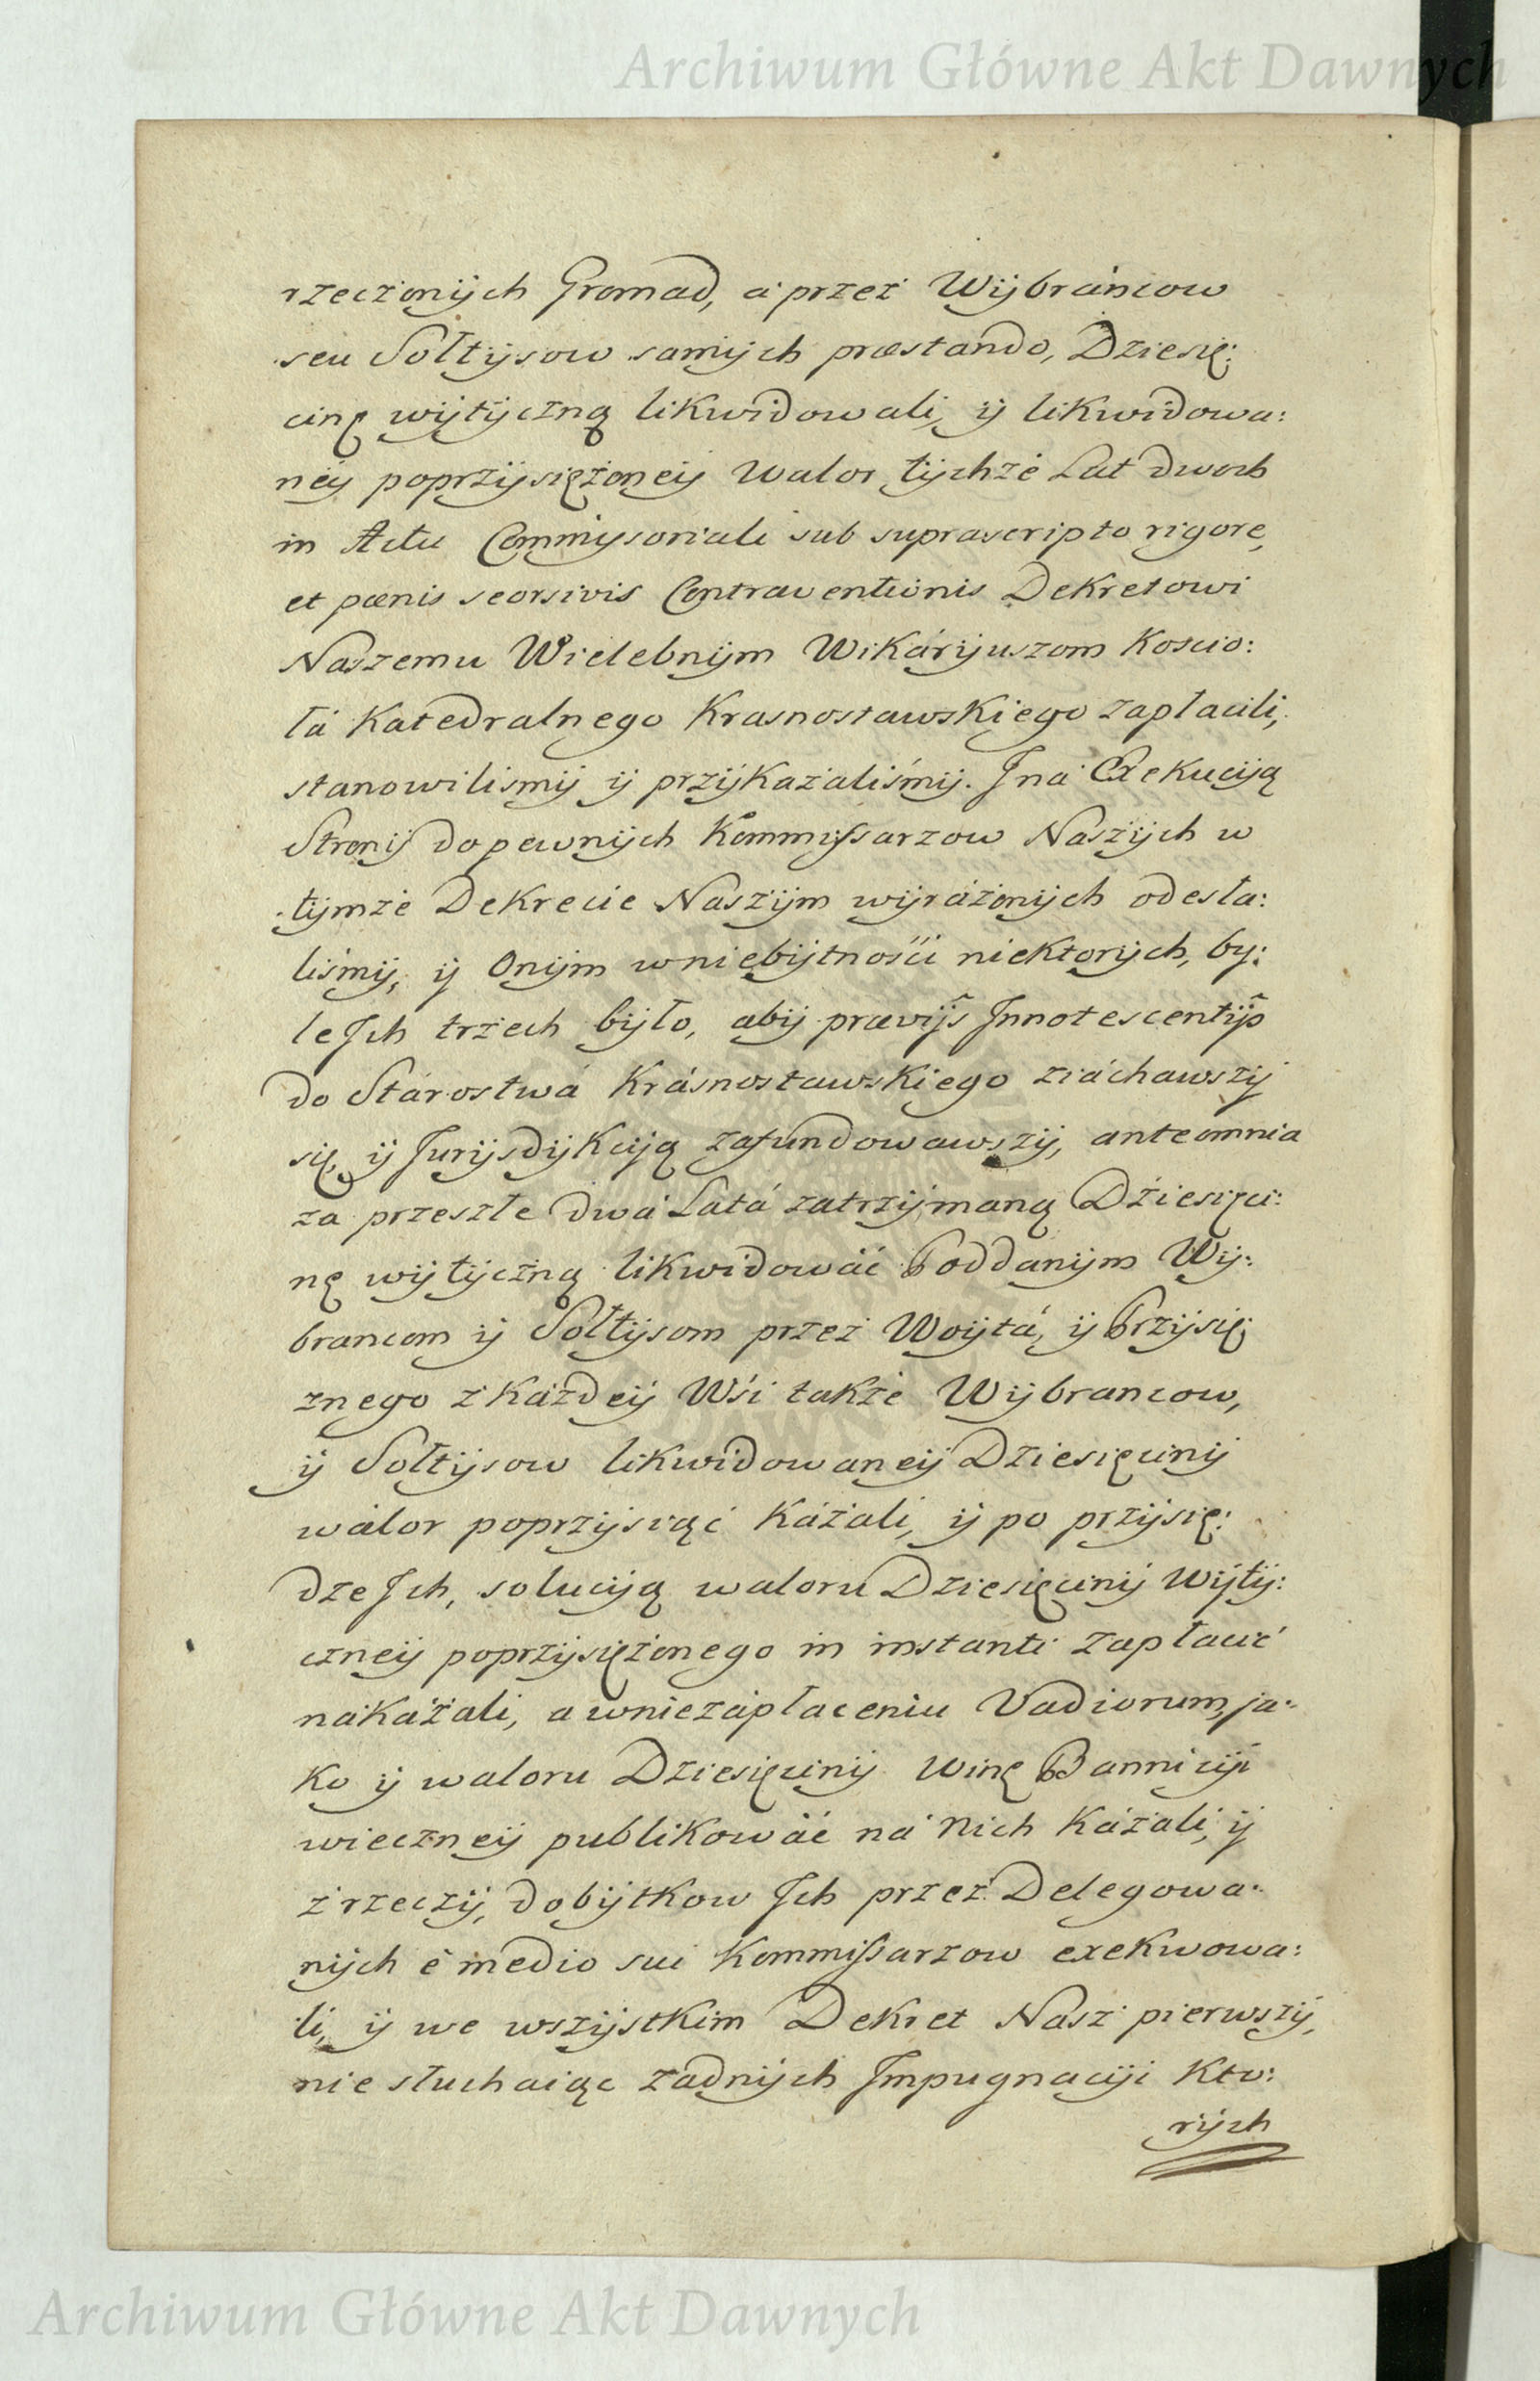 Archiwum Główne Akt Dawnych
rzeczonÿch Gromad, á przez Wÿbráncow
seu Sołtÿsow samÿch præstando, Dziesię:
cinę wÿtÿczną likwidowali, ÿ likwidowa:
neÿ poprzÿsiężoneÿ walor tÿchże Lat dwoch
in Actu Commissoriali sub suprascripto rigore,
et pœnis seorsivis Contraventionis Dekretowi
Naszemu Wielebnÿm Wikárÿuszom Koscio:
łá Katedralnego Krasnostawskiego zapłacili,
stanowilismÿ ÿ przÿkazaliśmÿ. Iná Exekucÿą
Stronÿ do pewnÿch Kommissarzow Naszÿch w
tÿmże Dekrecie Naszÿm wÿrażonÿch odesła:
liśmÿ, ÿ Onÿm wniebÿtnośći niektorÿch, by:
le Ich trzech bÿło, abÿ prævÿs Innotescentÿs
do Stárostwá Krásnostawskiego ziáchawszÿ
się, ÿ Iurÿsdÿkcÿą zafundowawszÿ, ante omnia
za przeszłe dwá Latá zatrzÿmaną Dźiesięci:
nę wÿtÿczną likwidowáć Poddanÿm Wÿ:
brancom ÿ Sołtÿsom przez Woÿtá, ÿ Przÿsię:
znego z káżdeÿ Wśi także Wÿbrancow,
ÿ Sołtÿsow likwidowaneÿ Dziesięcinÿ
walor poprzÿsiąć kázali, ÿ po przÿsię:
dze Ich, solucÿą waloru Dziesięcinÿ Wÿtÿ:
czneÿ poprzÿsiężonego in instanti zapłacić
nakázali, a wniezápłaceniu Vadiorum, ja:
ko ÿ waloru Dziesięcinÿ winę Bannicÿi
wieczneÿ publikowáć ná Nich kázali, ÿ
z rzeczÿ, dobÿtkow Ich przez Delegowa:
nÿch è medio sui Kommissarzow exekwowa:
li, ÿ we wszÿstkim Dekret Nasz pierwszÿ,
nie słuchaiąc żadnÿch Impugnacÿi kto:
rÿch
Archiwum Główne Akt Dawnych